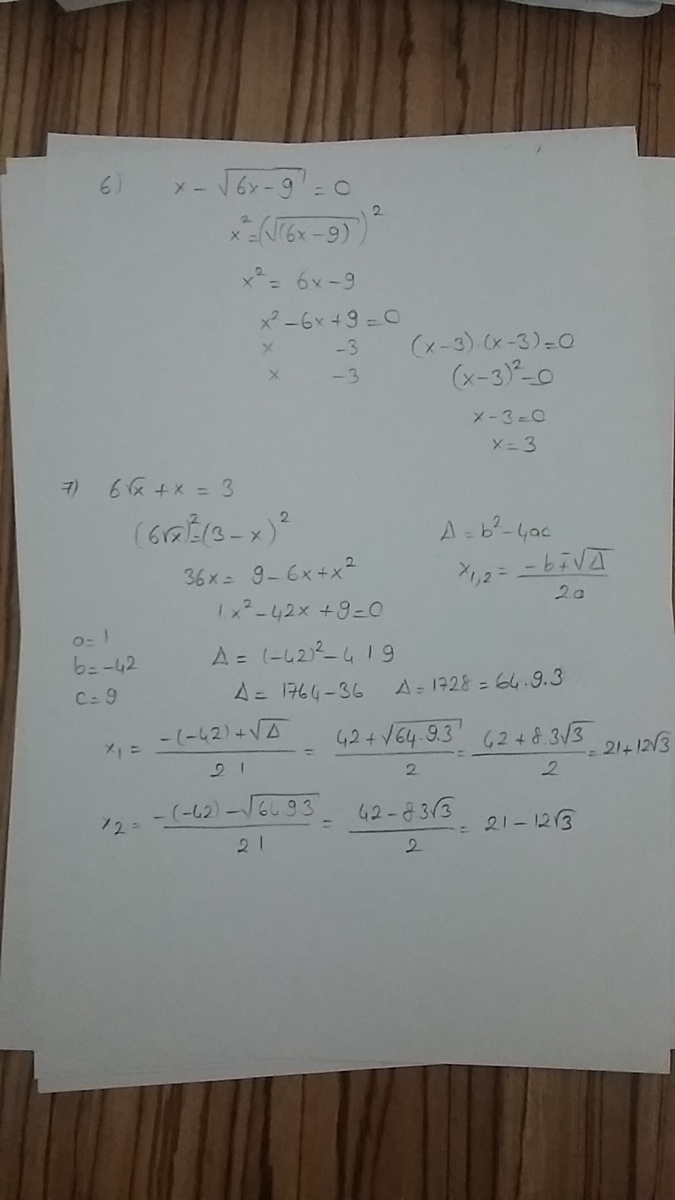 6) x − √(6x−9) = 0
x² = (√(6x−9))²
x² = 6x−9
x² −6x+9 = 0
x −3 (x−3).(x−3)=0
x −3 (x−3)²=0
x−3=0
x=3
7) 6√x + x = 3
(6√x)² = (3−x)²
36x = 9−6x+x²
1x²−42x+9=0
Δ = b²−4ac
x₁,₂ = (−b∓√Δ)/2a
a=1
b=−42
c=9
Δ = (−42)²−4 1 9
Δ = 1764−36 Δ=1728=64.9.3
x₁ = (−(−42)+√Δ)/(2 1) = (42+√(64.9.3))/2 = (42+8.3√3)/2 = 21+12√3
x₂ = (−(−42)−√(64 9 3))/(2 1) = (42−8 3√3)/2 = 21−12√3